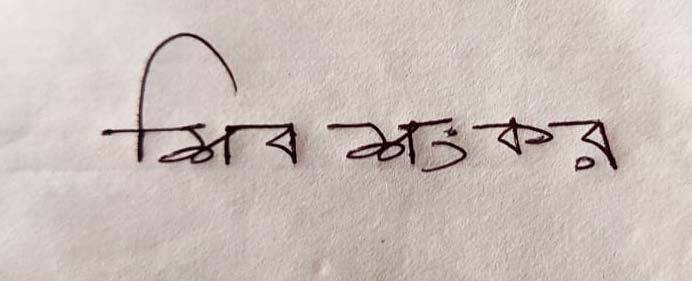 শিব শংকর